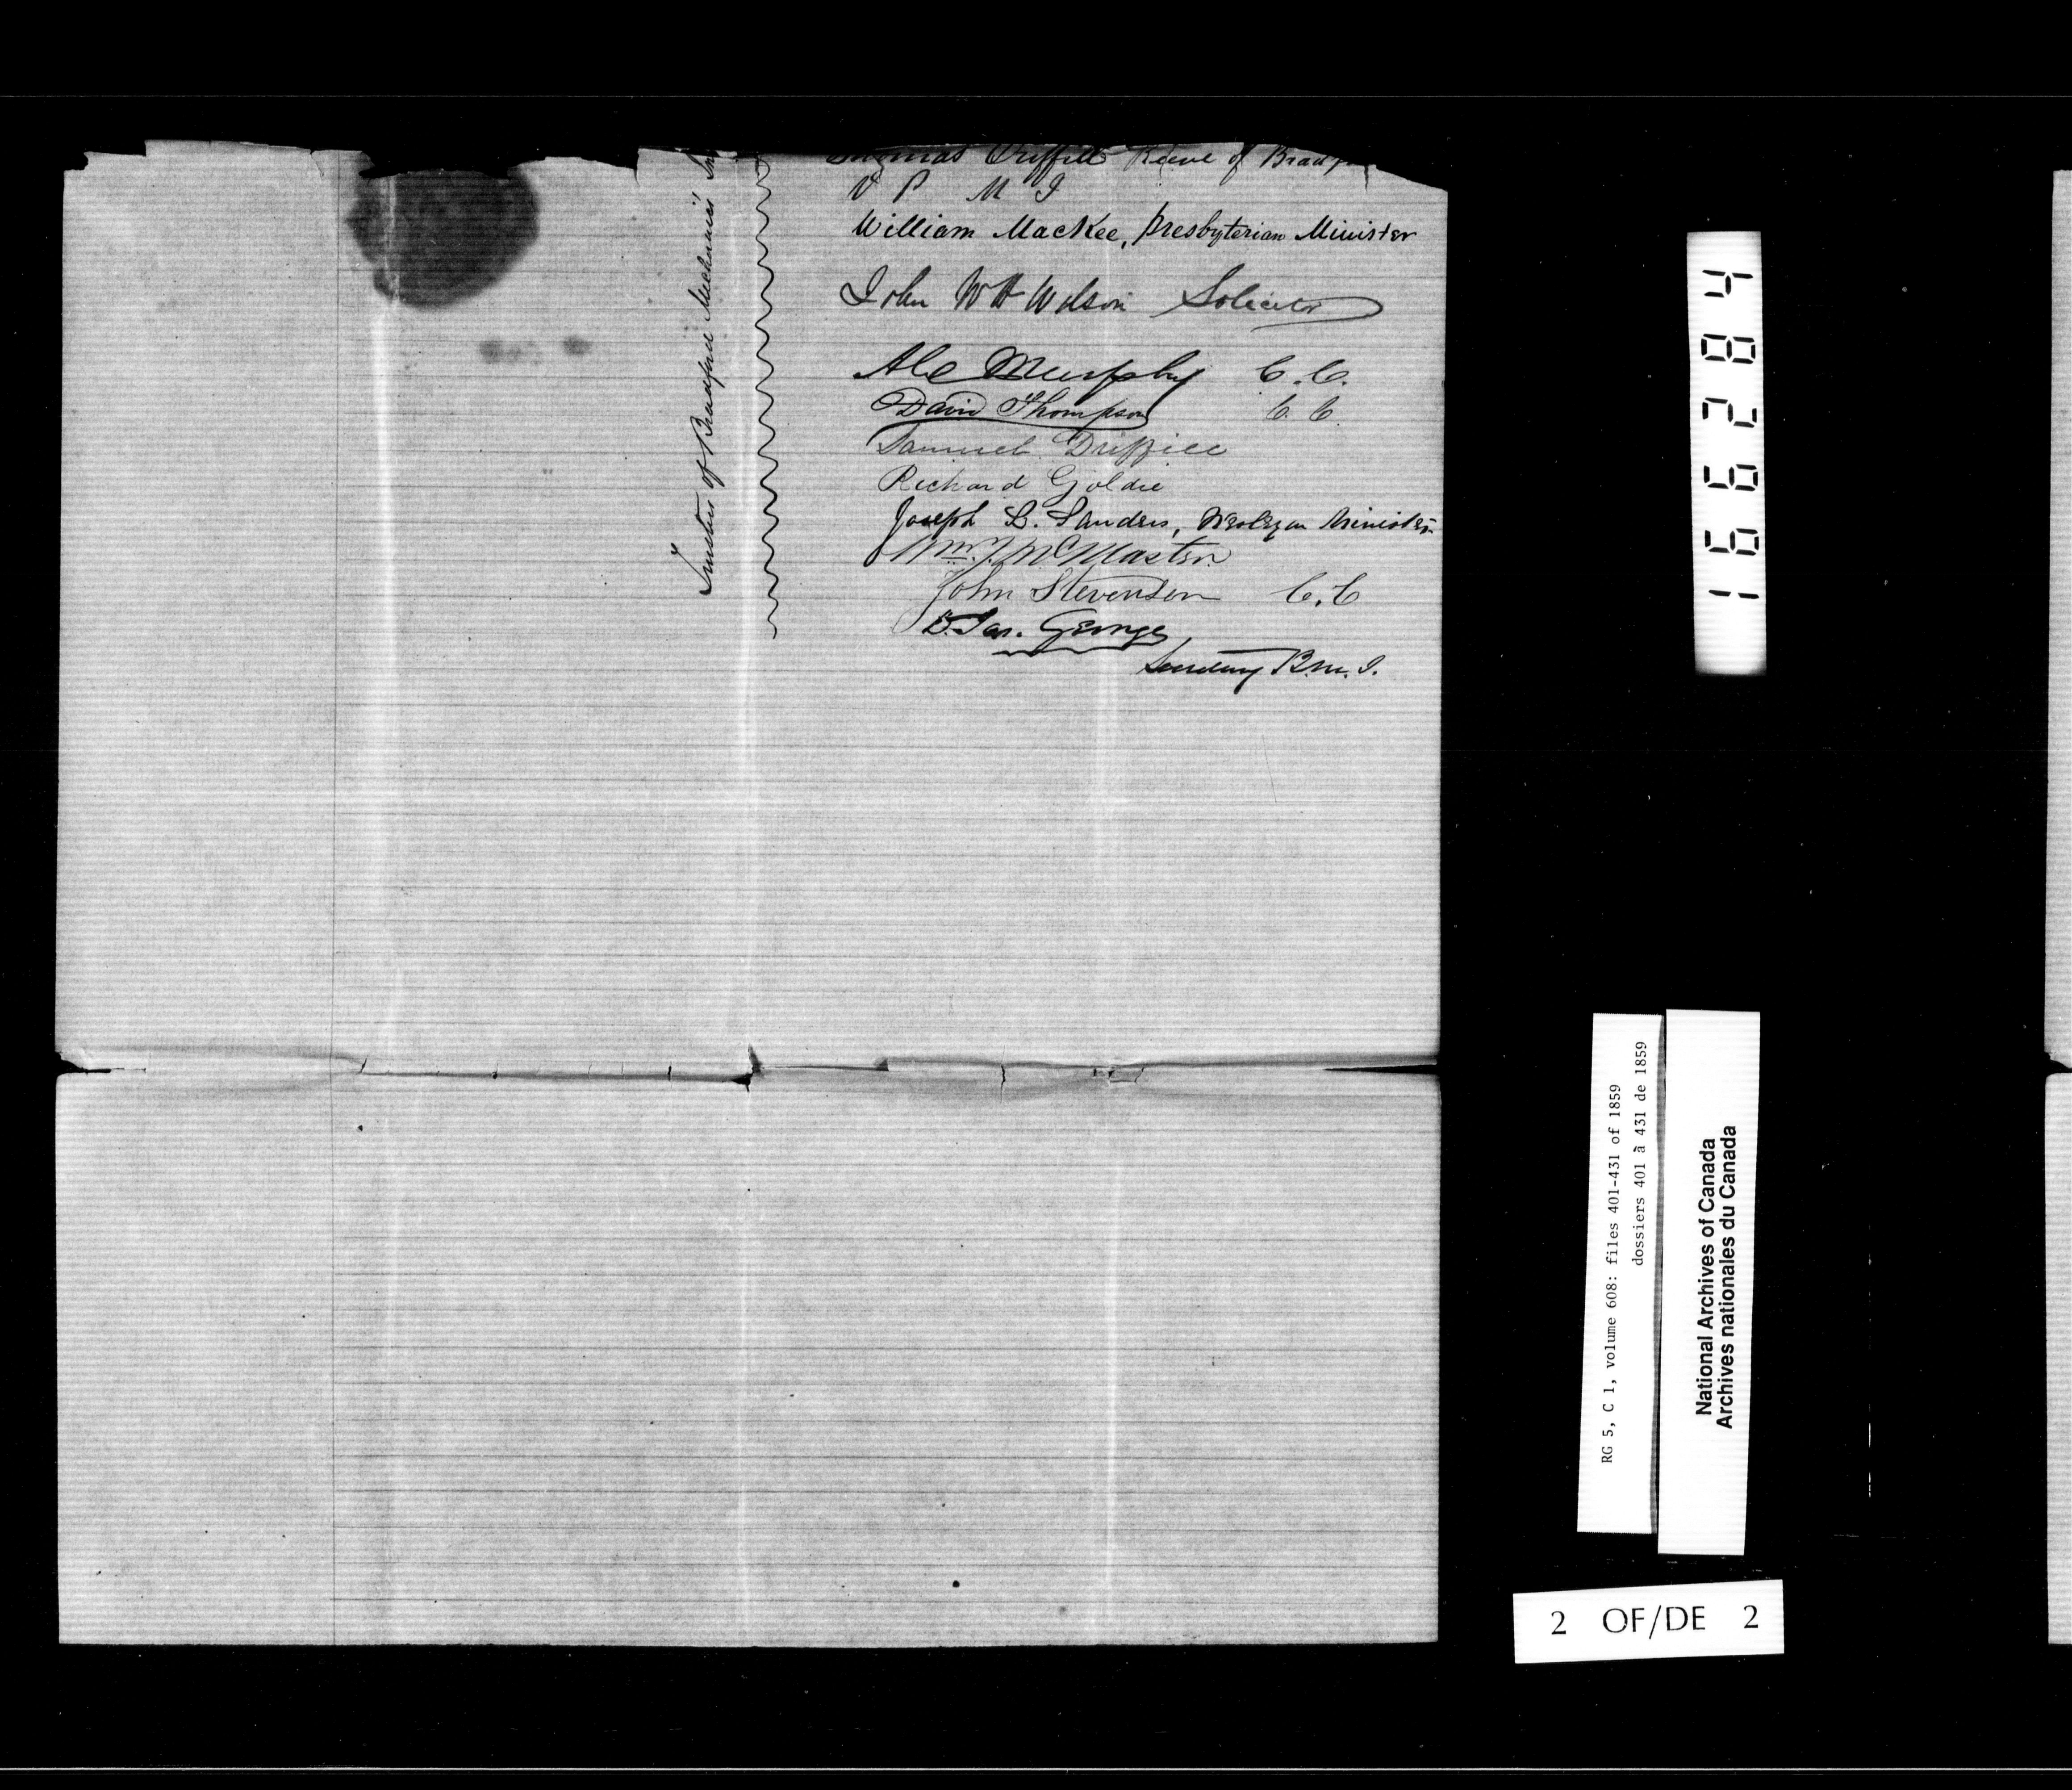 Thomas Driffill Reeve of Bradford
V P M I
William MacKee, Presbyterian Minister
John W H Wilson Solicitor
Murphy C.C.
David Thompson C.C.
Samuel Driffill
Richard Goldie
Joseph L. Sanders, Wesleyan Minister
Wm. McMaster
John Stevenson C.C
Jas. George,
Secretary B.M.I.
Trustees of Bradford Mechanics
166284
RG 5, C 1, volume 608: files 401-431 of 1859
dossiers 401 à 431 de 1859
National Archives of Canada
Archives nationales du Canada
2 OF/DE 2